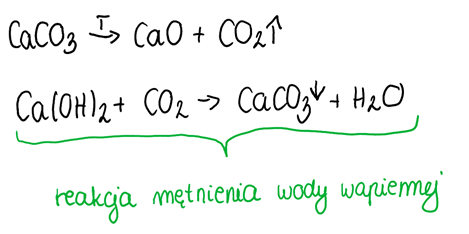 CaCO₃ →ᵀ CaO + CO₂↑
Ca(OH)₂ + CO₂ → CaCO₃↓ + H₂O
reakcja mętnienia wody wapiennej